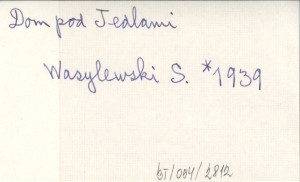 Dom pod Jedlami
Wasylewski S. *1939
bT/004/2812